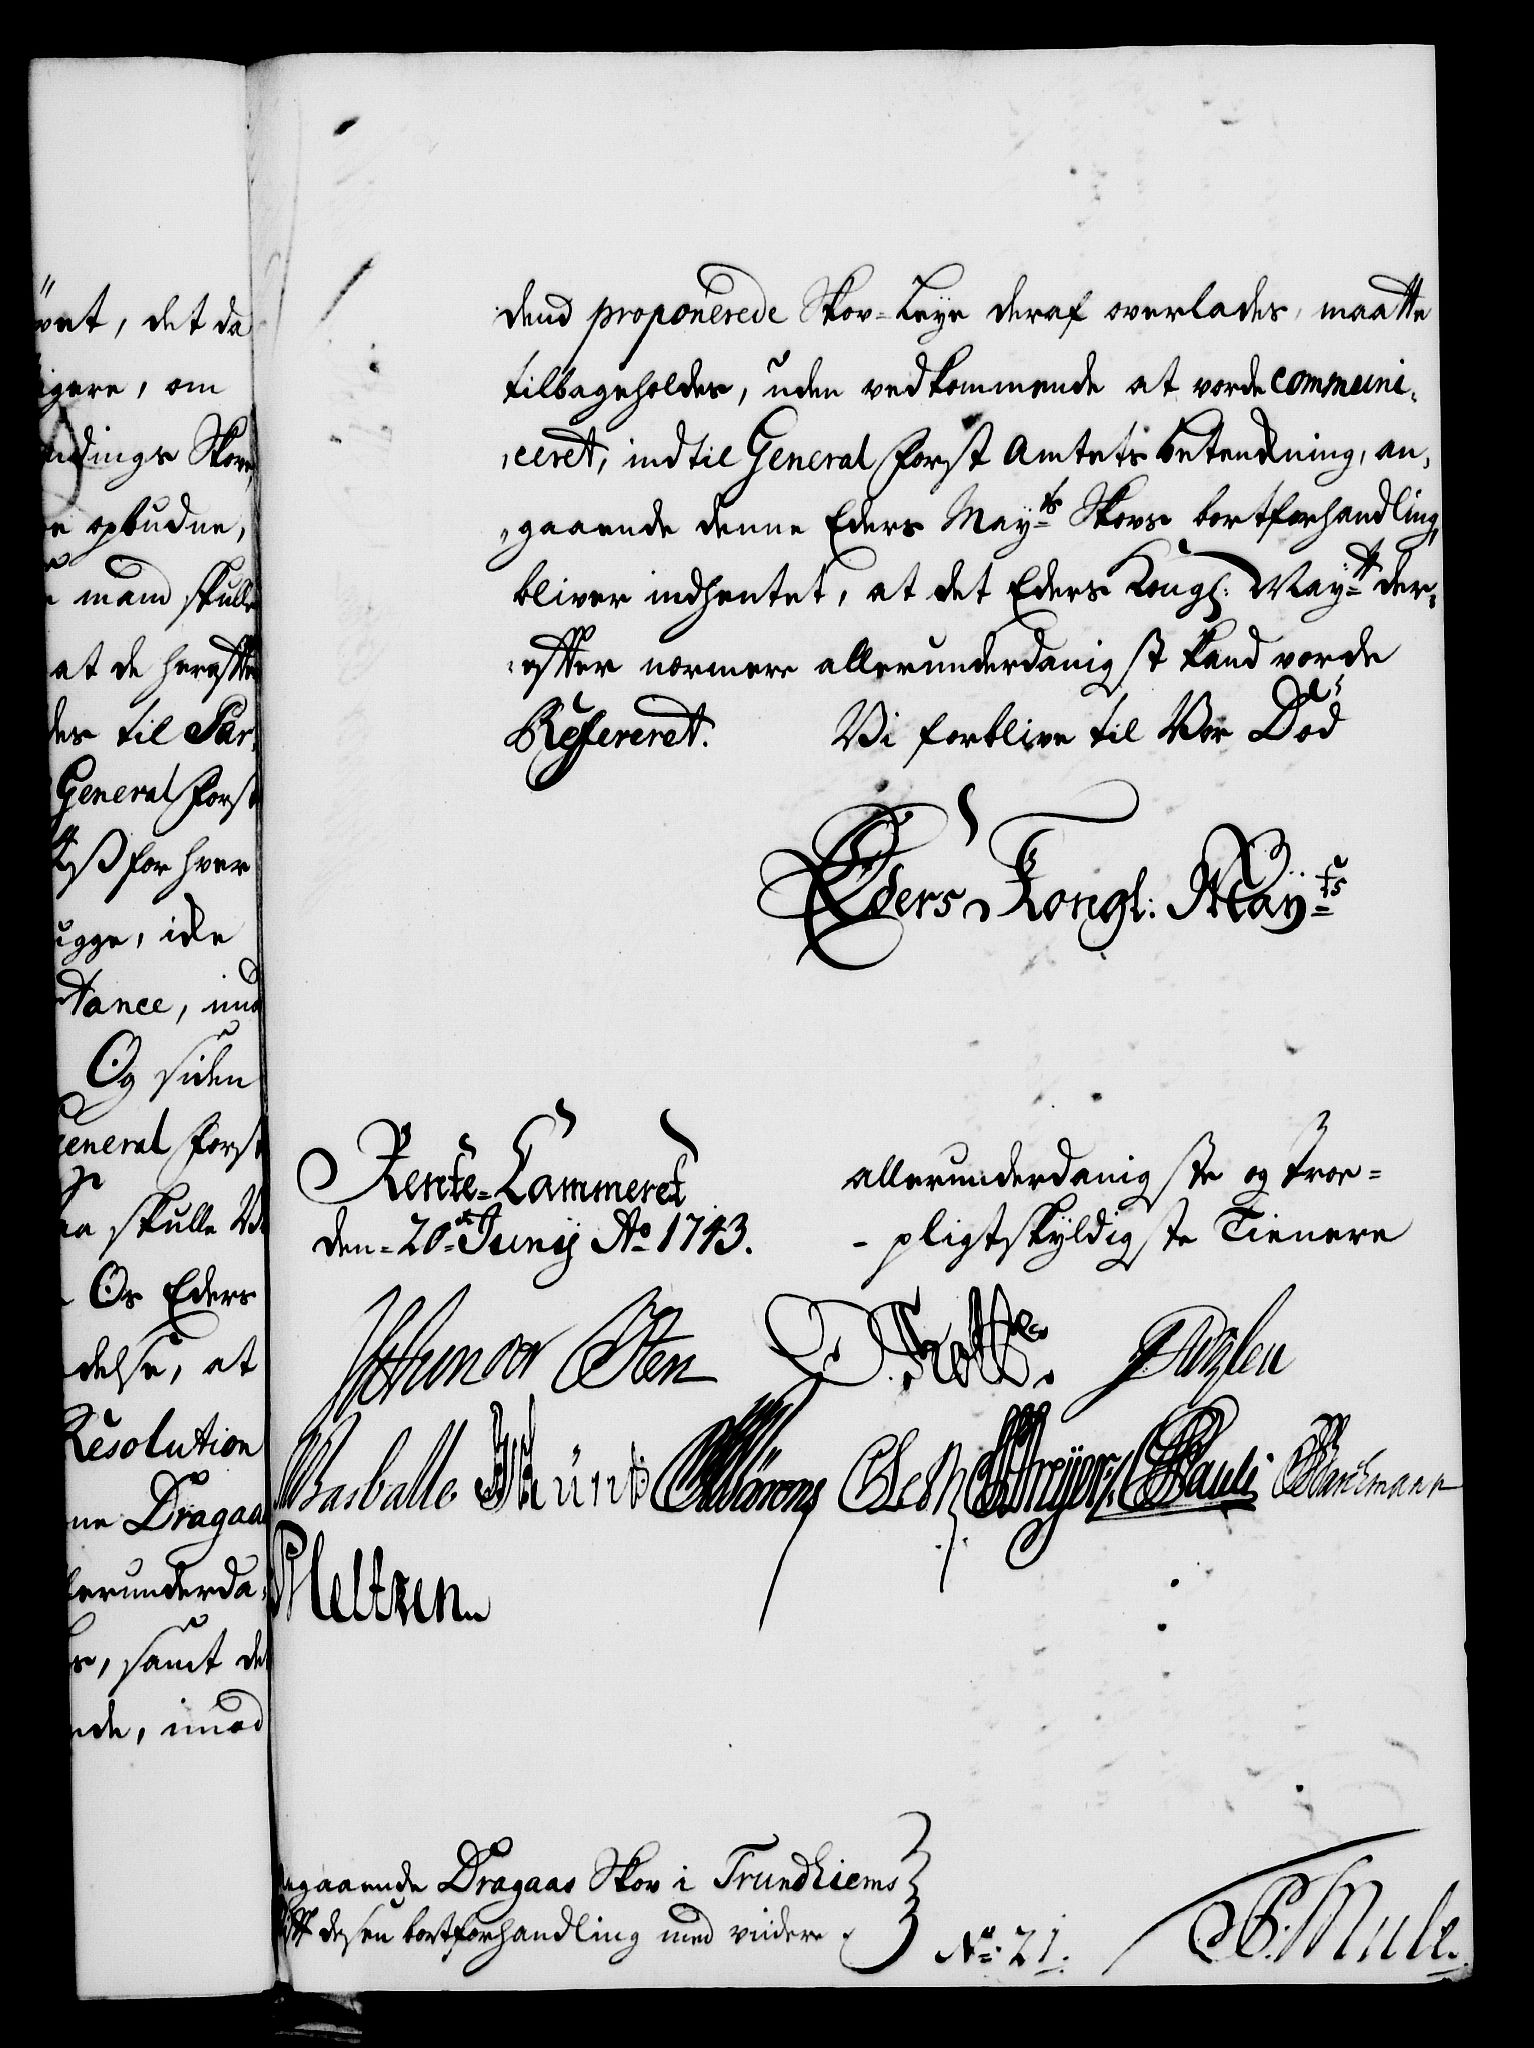 vet, det da
igere, om
ndings Skove,
re opbudne,
mand skulle
at de herefter
des til Par,
General Forst
for hver
ugge, i de
stance, ind
Og siden
General Forst
aa skulle Vi
Os Eders
delse, at
Resolution
ne Dragaas
lerunderda,
s, samt de
nde, imod
dend proponerede Skov-Leye deraf overlades, maatte
tilbageholdes, uden vedkommende at vorde communi,
,ceret, indtil General Forst Amtets betenckning, an,
,,gaaende denne Eders Mayts Skovs bortforhandling,
bliver indhentet, at det Eders Kongl: Mayt der,
,effter nærmere allerunderdanigst kand vorde
Refereret. Vi forblive til Vor Död
Eders Kongl: Mäyts
Rente-Cammeret
den 20de Junij Ao 1743.
allerunderdanigste og troe-
-pligtskyldigste Tienere
Sten
Basballe Münt Pauli
Meltzen
angaaende Dragaas Skov i Trundhiems
Amt dessen bortforhandling med viidere
No: 21.
Mule.